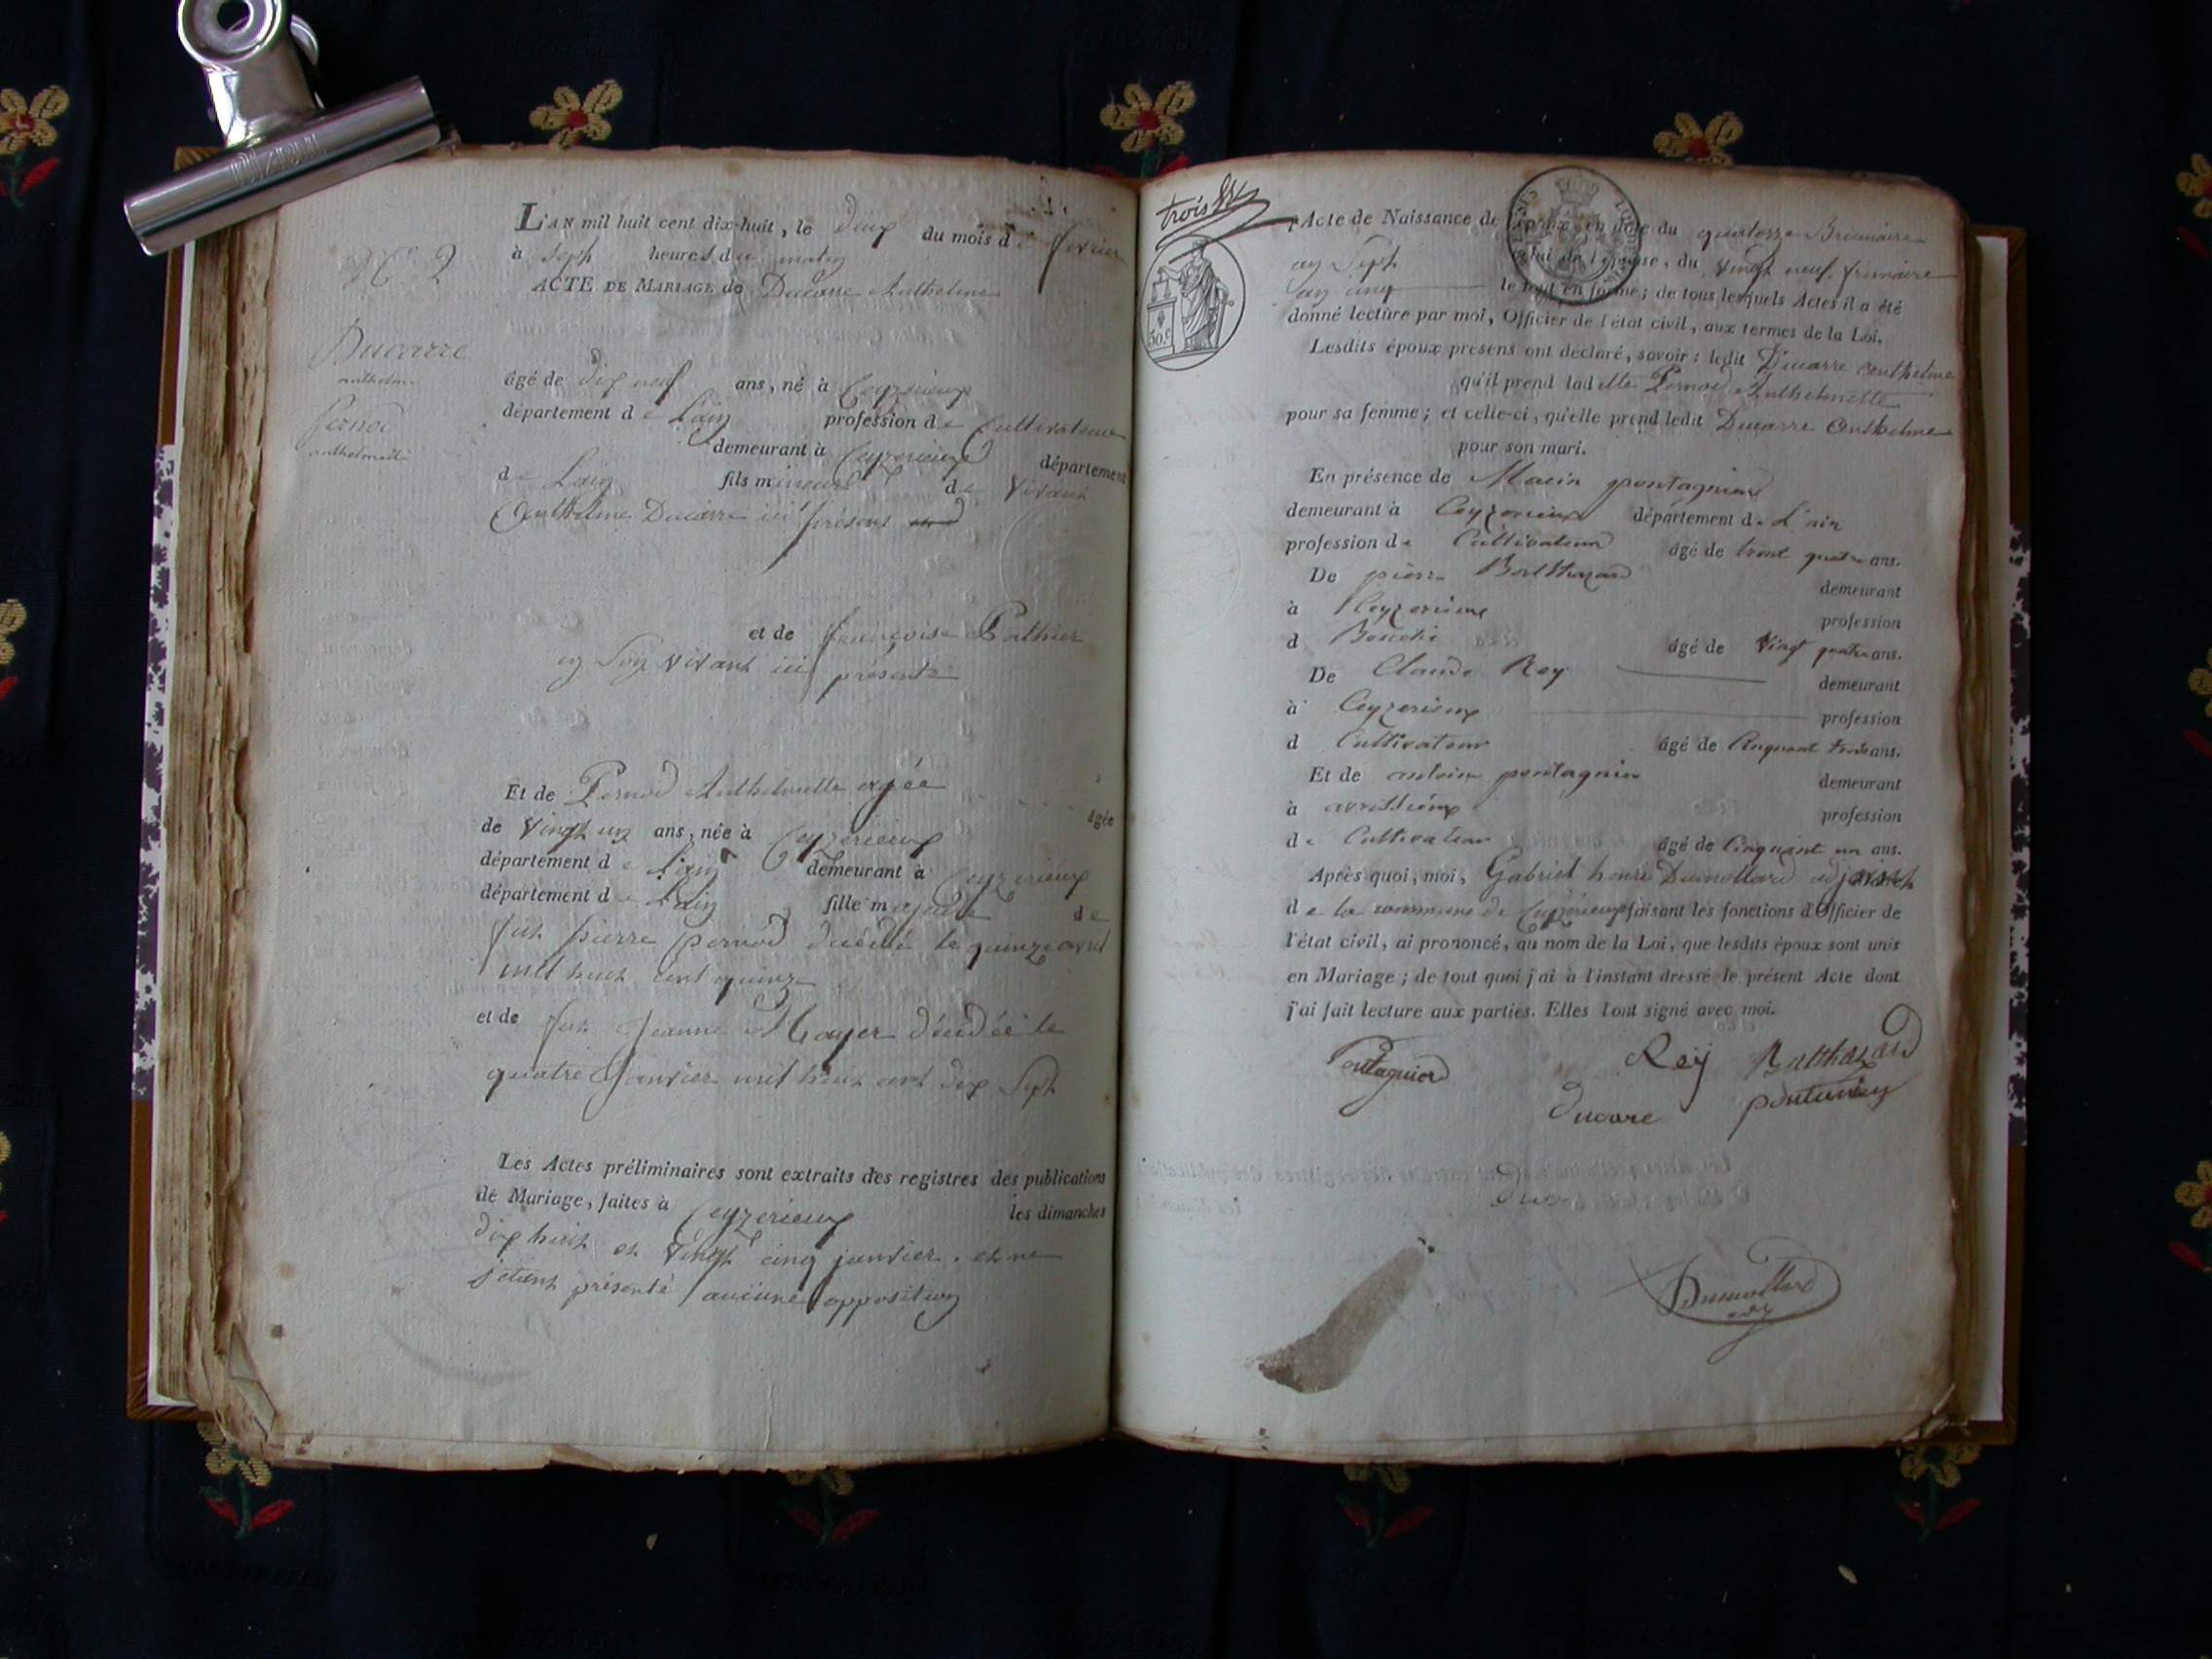 N.° 2
Ducarre
anthelme
Pernod
anthelmette
L'AN mil huit cent dix-huit, le deux du mois de fevrier
à Sept heures du matin
ACTE DE MARIAGE de Ducarre Anthelme
âgé de dix neuf ans, né à Ceyzerieux
département de Lain profession de Cultivateur
demeurant à Ceyzerieux département
de Lain fils mineur de vivant
Anthelme Ducarre ici présent
et de françoise Pathier
en son vivant ici présente
Et de Pernod Anthelmette agée
âgée
de vingt un ans, née à Ceyzerieux
département de Lain demeurant à Ceyzerieux
département de Lain fille majeure de
feu pierre pernod décédé le quinze avril
mil huit cent quinze
et de feu Jeanne Mayer décédée le
quatre Janvier mil huit cent dix Sept
Les Actes préliminaires sont extraits des registres des publications
de Mariage, faites à Ceyzerieux les dimanches
dix huit et vingt cinq janvier . et ne
s'etant présenté aucune opposition
trois
50.c
Acte de Naissance de l'époux en date du quatorze Brumaire
an Sept celui de l'épouse, du vingt neuf frimaire
an cinq le tout en forme; de tous lesquels Actes il a été
donné lecture par moi, Officier de l'état civil, aux termes de la Loi.
Lesdits époux présens ont déclaré, savoir: ledit Ducarre anthelme
qu'il prend ladite Pernod Anthelmette
pour sa femme; et celle-ci, qu'elle prend ledit Ducarre Anthelme
pour son mari.
En présence de Marin pontagnier
demeurant à Ceyzerieux département de L'ain
profession de Cultivateur âgé de trent quatre ans.
De pierre Balthazard demeurant
à Ceyzerieux profession
d âgé de vingt quatre ans.
De Claude Rey demeurant
à Ceyzerieux profession
d Cultivateur âgé de Cinquant trois ans.
Et de antoine pontagnier demeurant
à profession
de Cultivateur âgé de Cinquant un ans.
Après quoi, moi, Gabriel henri Dumollard adjoint
de la commune de Ceyzerieux faisant les fonctions d'Officier de
l'état civil, ai prononcé, au nom de la Loi, que lesdits époux sont unis
en Mariage; de tout quoi j'ai à l'instant dressé le présent Acte dont
j'ai fait lecture aux parties. Elles l'ont signé avec moi.
Pontagnier Rey Balthazard
Ducare
Dumollard
adj